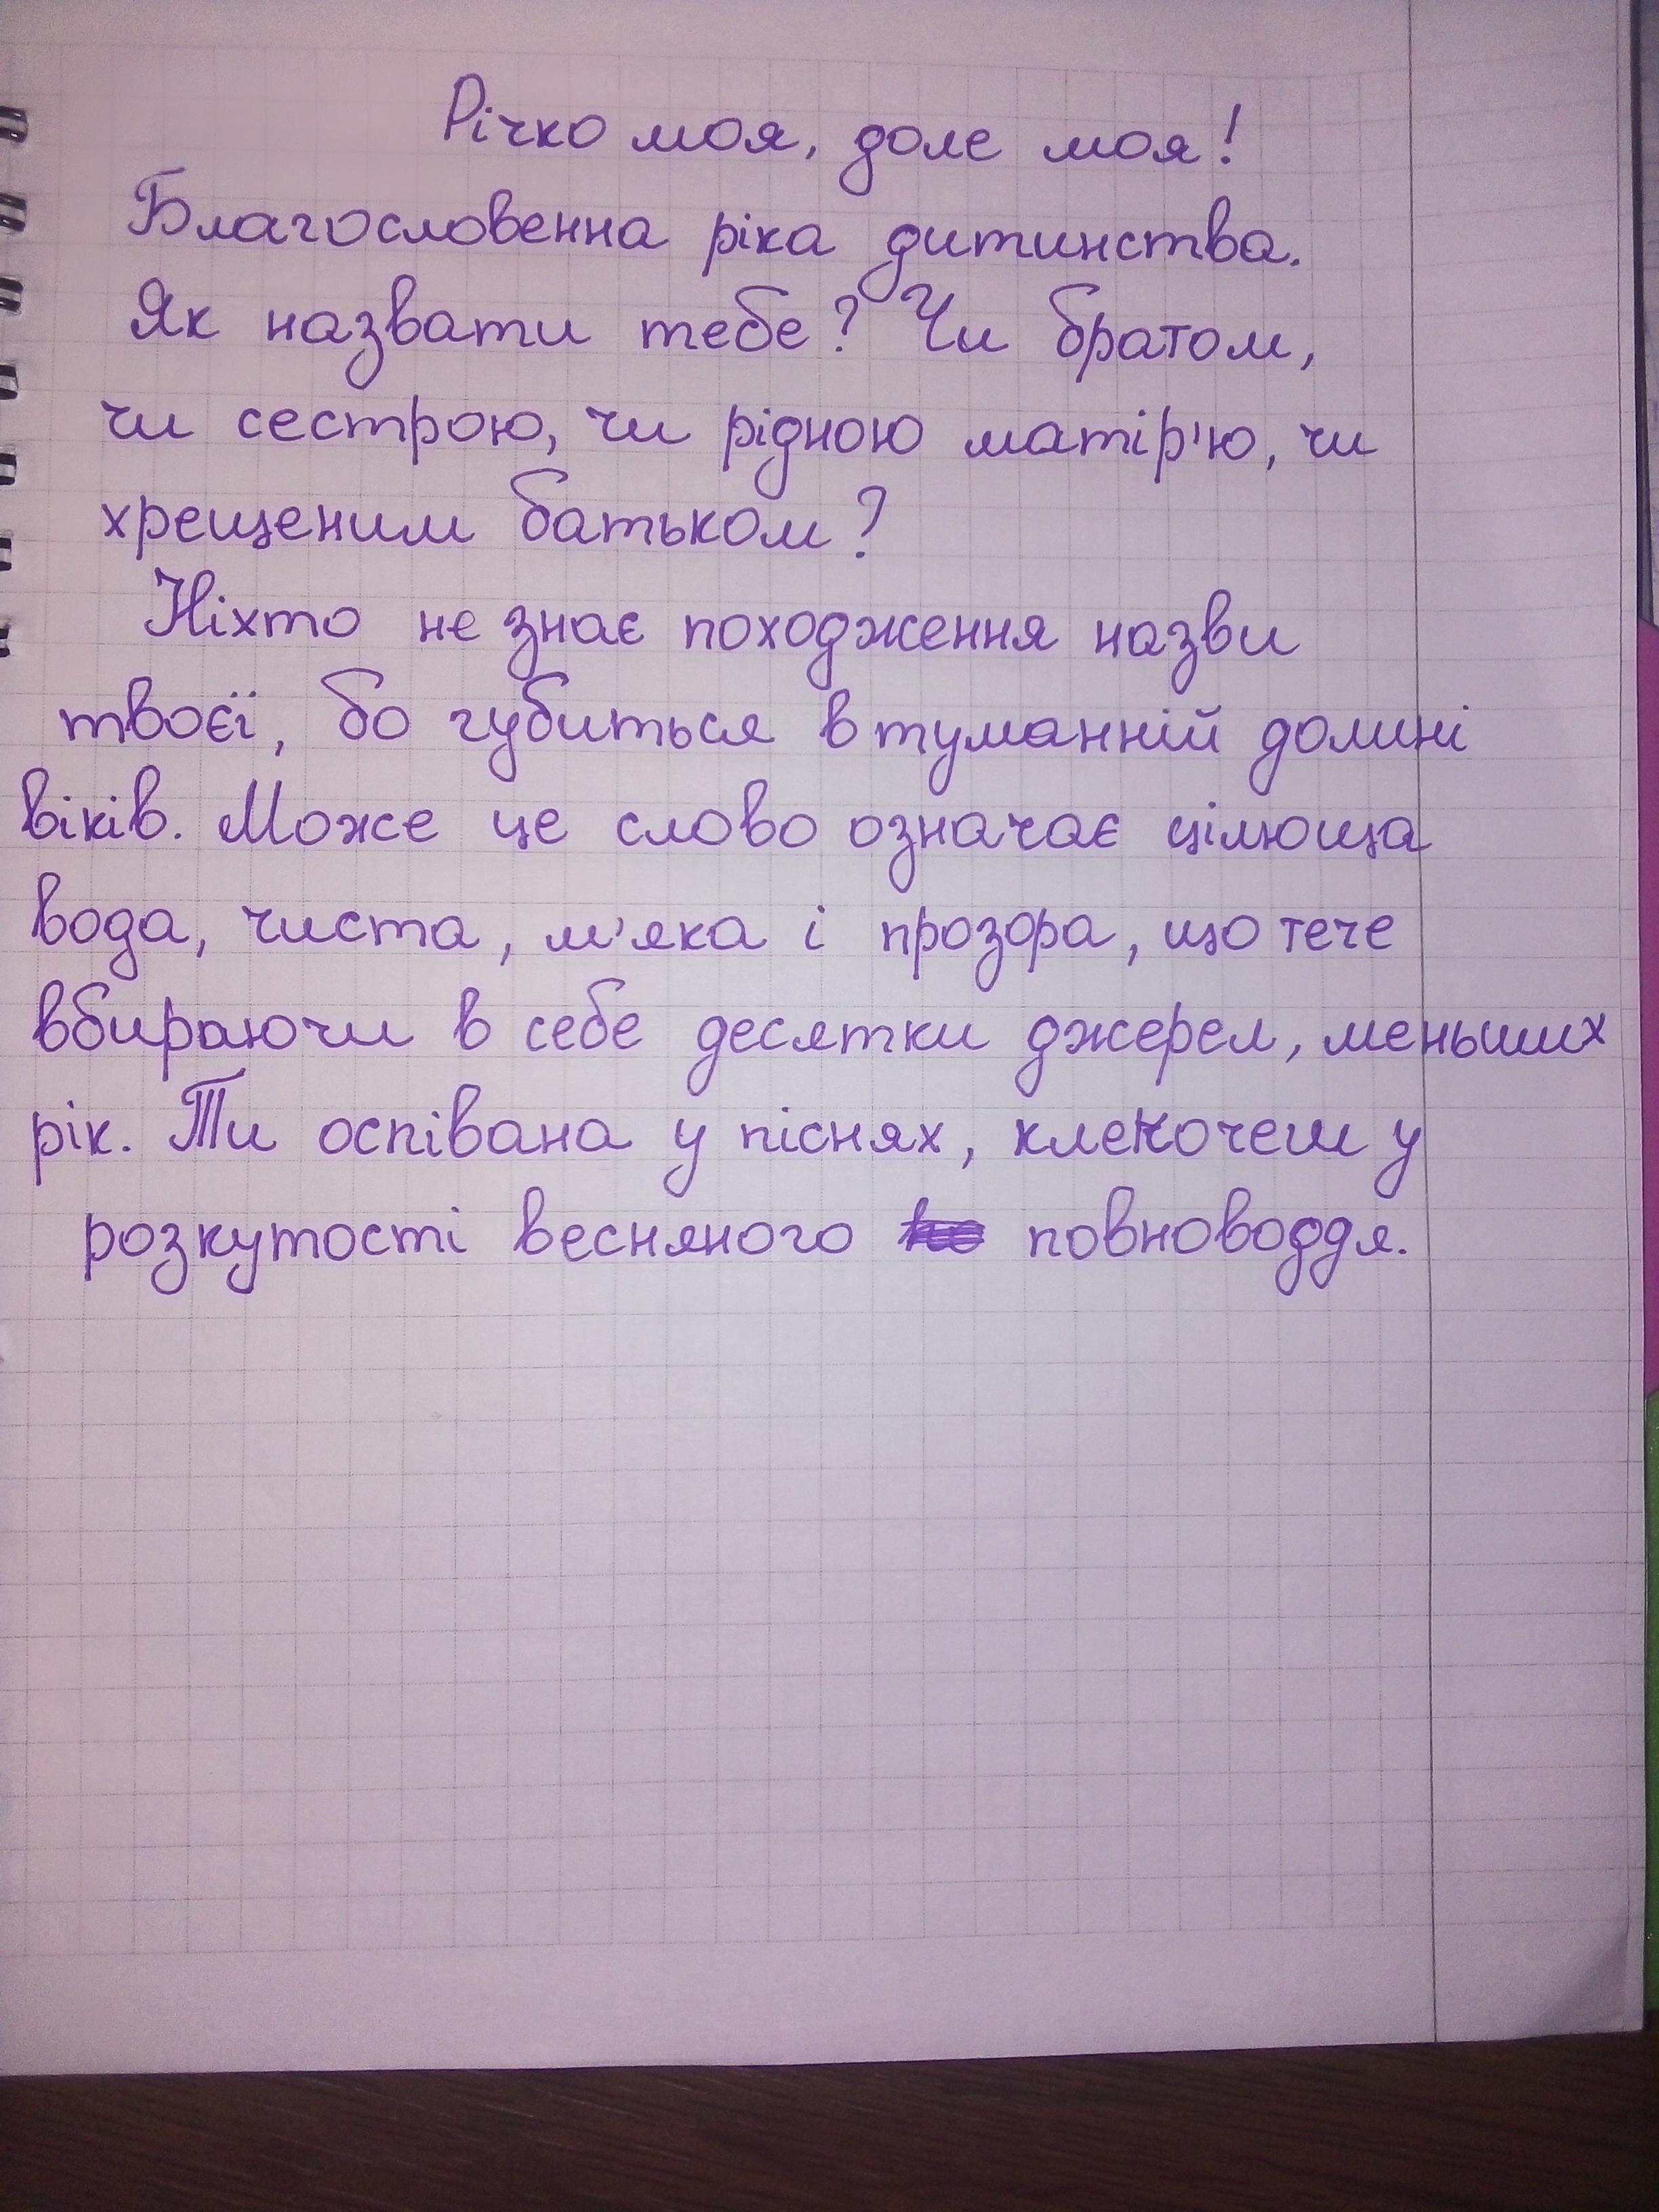 Річко моя, доле моя!
Благословенна ріка дитинства.
Як назвати тебе? Чи братом,
чи сестрою, чи рідною матір'ю, чи
хрещеним батьком?
Ніхто не знає походження назви
твоєї, бо губиться в туманній долині
віків. Може це слово означає цілюща
вода, чиста, м'яка і прозора, що тече
вбираючи в себе десятки джерел, меньших
рік. Ти оспівана у піснях, клекочеш у
розкутості весняного повноводдя.